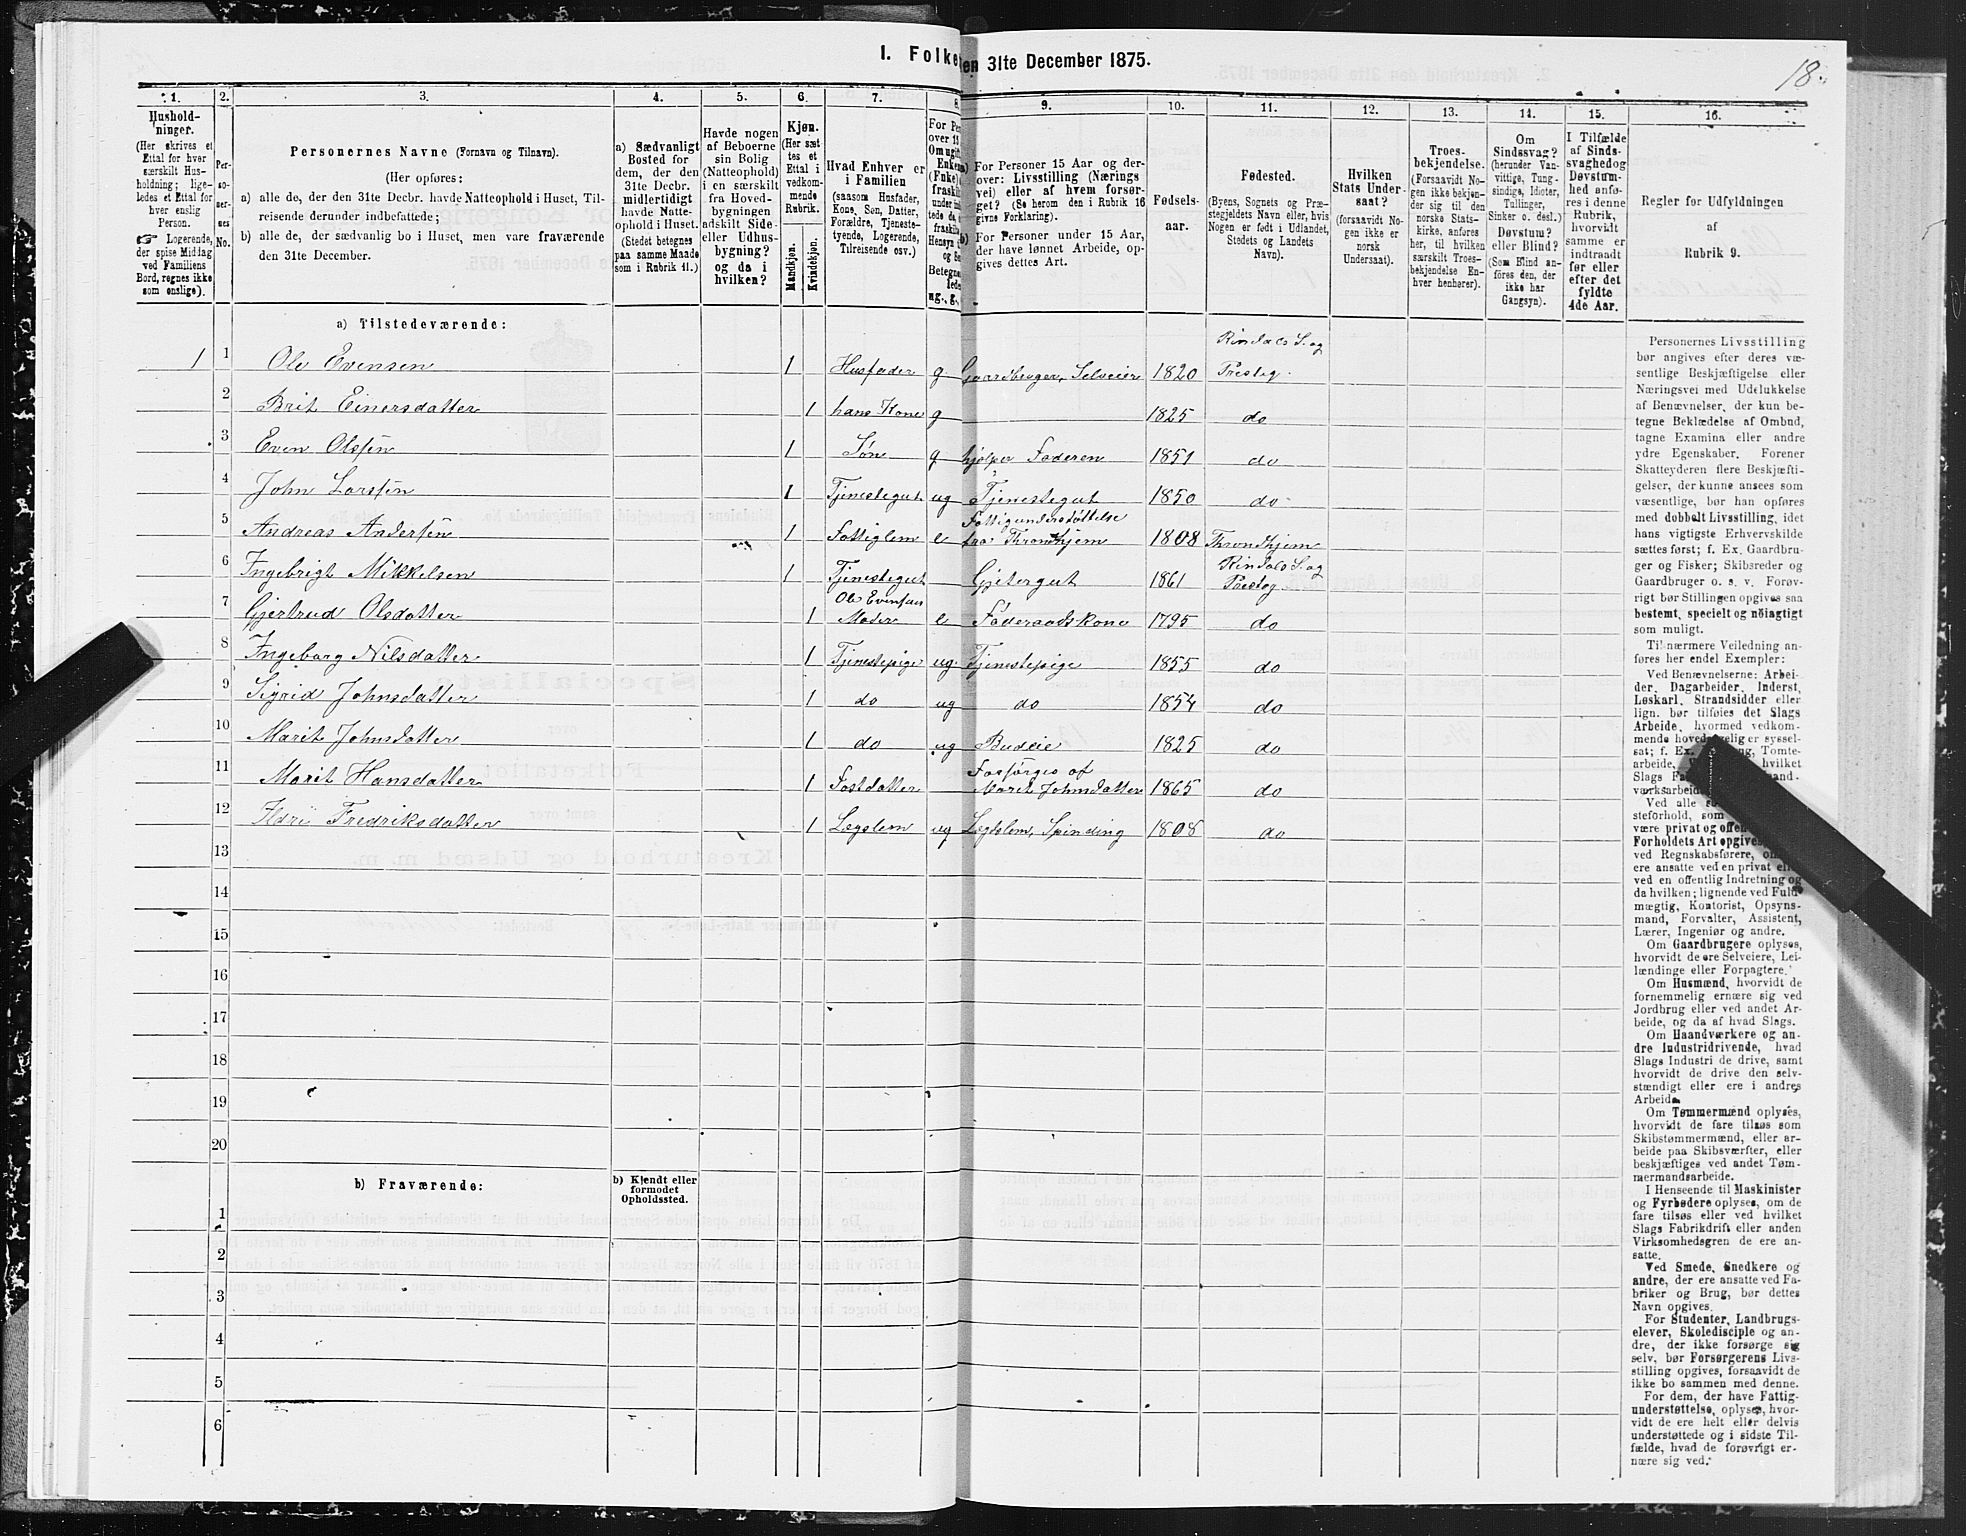 1. Folke en 31te December 1875.
18.
1. 2. 3. 4. 5. 6. 7. 8. 9. 10. 11. 12. 13. 14. 15. 16.
Hushold-
ninger.
(Her skrives et
Ettal for hver
særskilt Hus-
holdning; lige-
ledes et Ettal for
hver enslig
Person.
☞ Logerende,
der spise Middag
ved Familiens
Bord, regnes ikke
som enslige).
Per-
so-
ner-
nes
No.
Personernes Navne (Fornavn og Tilnavn).
(Her opføres:
a) alle de, der den 31te Decbr. havde Natteophold i Huset, Til-
reisende derunder indbefattede;
b) alle de, der sædvanlig bo i Huset, men vare fraværende
den 31te December.
a) Sædvanligt
Bosted for
dem, der den
31te Decbr.
midlertidigt
havde Natte-
ophold i Huset.
(Stedet betegnes
paa samme Maade
som i Rubrik 11.)
Havde nogen
af Beboerne
sin Bolig
(Natteophold)
i en særskilt
fra Hoved-
bygningen
adskilt Side-
eller Udhus-
bygning?
og da i
hvilken?
Kjøn.
(Her sæt
tes et
Ettal i
vedkom-
mende
Rubrik.
Mandkjøn.
Kvindekjøn.
Hvad Enhver er
i Familien
(saasom Husfader,
Kone, Søn, Datter,
Forældre, Tjeneste-
tyende, Logerende,
Tilreisende osv.)
For Pe
over 15
Om ugift
Enkem
(Fuke)
fraskil
Betegne
ug., g.,
For Personer 15 Aar og der-
over: Livsstilling (Nærings
vei) eller af hvem forsør-
get? (Se herom den i Rubrik 16
givne Forklaring).
For Personer under 15 Aar,
der have lønnet Arbeide, op-
gives dettes Art.
Fødsels-
aar.
Fødested.
(Byens, Sognets og Præ-
stegjeldets Navn eller, hvis
Nogen er født i Udlandet,
Stedets og Landets
Navn).
Hvilken
Stats Under-
saat?
(forsaavidt No-
gen ikke er
norsk
Undersaat).
Troes-
bekjendelse.
(Forsaavidt No-
gen ikke bekjen-
der sig til den
norske Stats-
kirke, anføres
her, til hvilken
særskilt Troes-
bekjendelse En-
hver henhører).
Om
Sindssvag?
(herunder Van-
vittige, Tung-
sindige, Idioter,
Tullinger,
Sinker o. desl.)
Døvstum?
eller Blind?
(Som Blind an-
føres den, der
ikke har
Gangsyn).
I Tilfælde
af Sinds-
svaghed og
Døvstum-
hed anfø-
res i denne
Rubrik,
hvorvidt
samme er
indtraadt
før eller
efter det
fyldte
4de Aar.
Regler for Udfyldningen
af
Rubrik 9
a) Tilstedeværende:
Rindals S. og
1 1 Ole Evensen 1 Husfader g Gaardbruger, Selveier 1820 Presteg.
2 Brit Einersdatter 1 hans Kone g 1825 do
3 Even Olssen 1 Søn g hjelper Faderen 1851 do
4 John Larssen 1 Tjenestegut ug Tjenestegut 1850 do
Fattigunderstøttelse
5 Andreas Anderssen 1 Fattiglem e fra Throndhjem 1808 Throndhjem
Rindals S. og
6 Ingebrigt Mikkelsen 1 Tjenestegut Gjetergut 1861 Presteg.
Ole Evensens
7 Gjertrud Olsdatter 1 Moder e Føderaadskone 1795 do
8 Ingeborg Nilsdatter 1 Tjenestepige ug. Tjenestepige 1855 do
9 Sigrid Johnsdatter 1 do ug do 1854 do
10 Marit Johnsdatter 1 do ug Budeie 1825 do
Forsørges af
11 Marit Hansdatter 1 Fostdatter Marit Johnsdatter 1865 do
12 Ildri Fredriksdatter 1 Lægslem ug Lægslem, Spinding 1808 do
13
14
15
16
17
18
19
20
b) Fraværende:
b) Kjendt eller
formodet
Opholdssted.
1
2
3
4
5
6
Personernes Livsstilling
bør angives efter deres væ-
sentlige Beskjæftigelse eller
Næringsvei med Udelukkelse
af Benævnelser, der kun be-
tegne Beklædelse af Ombud,
tagne Examina eller andre
ydre Egenskaber. Forener
Skatteyderen flere Beskjæfti-
gelser, der kunne ansees som
væsentlige, bør han opføres
med dobbelt Livsstilling, idet
hans vigtigste Erhvervskilde
sættes først; f. Ex. Gaardbru-
ger og Fisker; Skibsreder og
Gaardbruger o. s. v. Forøv-
rigt bør Stillingen opgives saa
bestemt, specielt og nöiagtigt
som muligt.
Til nærmere Veiledning an-
føres her endel Exempler:
Ved Benævnelserne: Arbei-
der, Dagarbeider, Inderst,
Løskarl, Strandsidder eller
lign. bør tilføies det Slags
Arbeide, hvormed vedkom-
mende hovedsagelig er syssel-
sat; f. Ex. Tomte-
arbeide, hvilket
Slags
værksarbeide
Ved alle
steforhold, som
være privat og offen
Forholdets Art opgives
ved Regnskabsførere,
ere ansatte ved en privat el
ved en offentlig Indretning og
da hvilken; lignende ved Fuld-
mægtig, Kontorist, Opsyns-
mand, Forvalter, Assistent,
Lærer, Ingeniør og andre.
Om Gaardbrugere oplyses,
hvorvidt de ere Selveiere, Lei-
lændinge eller Forpagtere.
Om Husmænd, hvorvidt de
fornemmelig ernære sig ved
Jordbrug eller ved andet Ar-
beide, og da af hvad Slags.
Om Haandværkere og an-
dre Industridrivende, hvad
Slags Industri de drive, samt
hvorvidt de drive den selv-
stændigt eller ere i andres
Arbeide.
Om Tømmermænd oplyses,
hvorvidt de fare tilsøs som
Skibstømmermænd, eller ar-
beide paa Skibsværfter, eller
beskjæftiges ved andet Tøm-
mermandsarbeide.
I Henseende til Maskinister
og Fyrbødere oplyses, om de
fare tilsøs eller ved hvilket
Slags Fabrikdrift eller anden
Virksomhedsgren de ere an-
satte.
Ved Smede, Snedkere og
andre, der ere ansatte ved Fa-
briker og Brug, bør dettes
Navn opgives.
For Studenter, Landbrugs-
elever, Skoledisciple og an-
dre, der ikke forsørge sig
selv, bør Forsørgerens Livs-
stilling opgives, forsaavidt de
ikke bo sammen med denne.
For dem, der have Fattig-
understøttelse, oplyses, hvor-
vidt de ere helt eller delvis
understøttede og i sidste Til-
fælde, hvad de forøvrigt er-
nære sig ved.